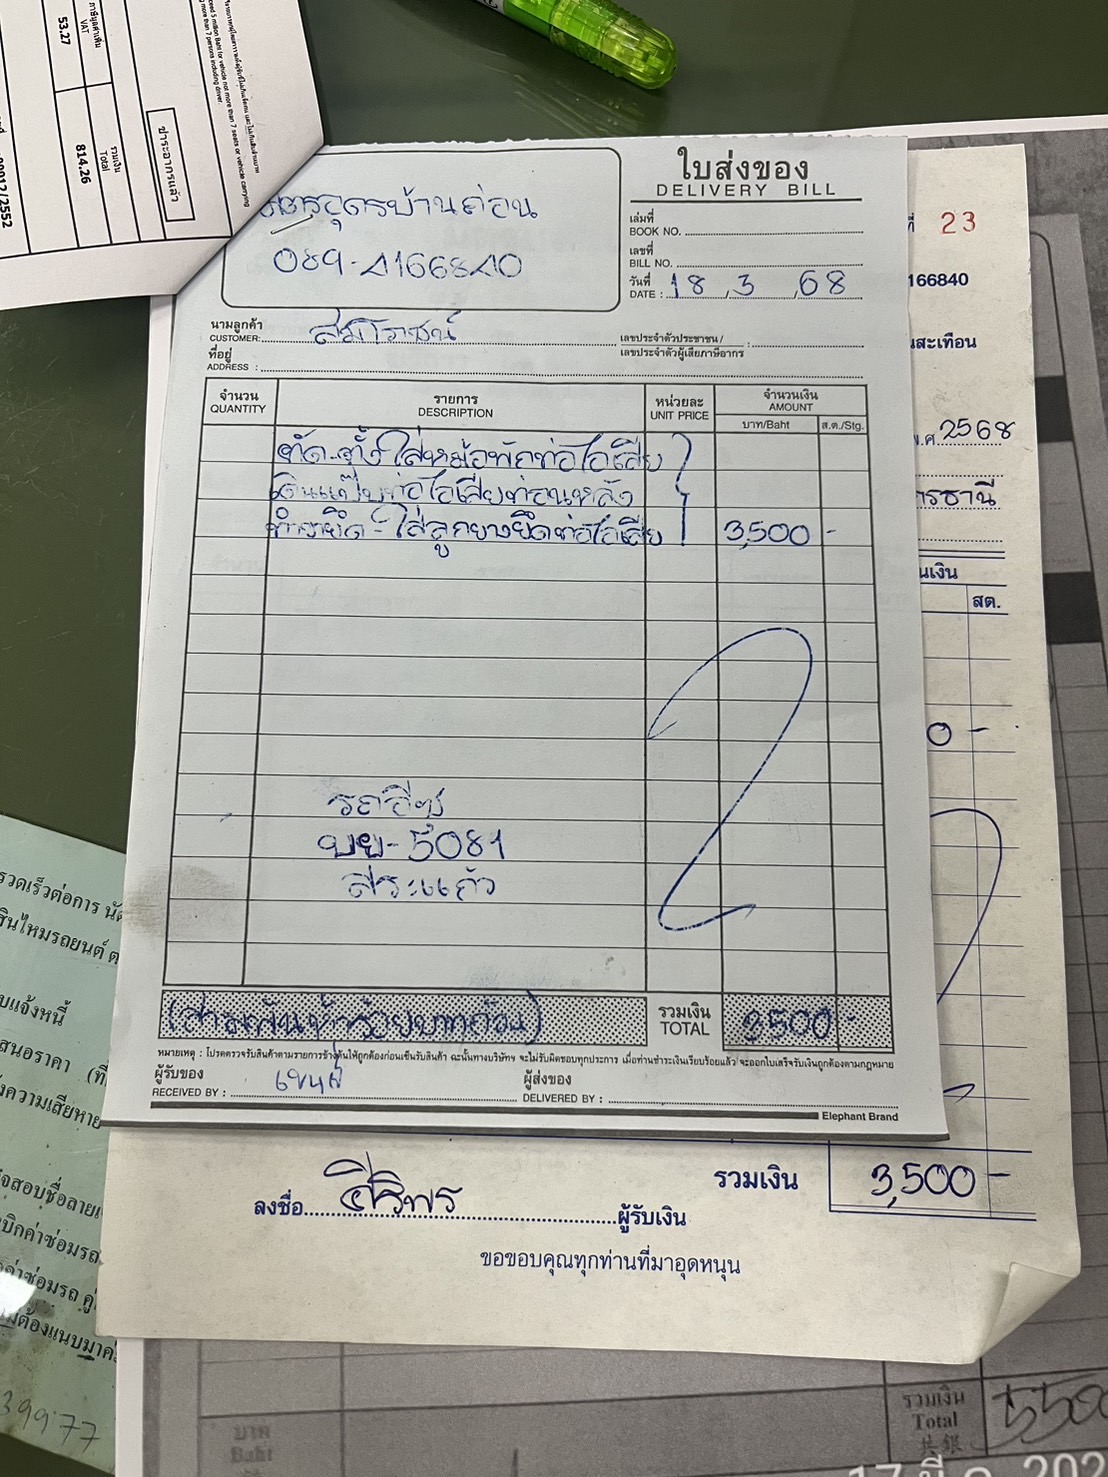 ภาษีมูลค่าเพิ่ม
VAT
53.27
รวมเงิน
Total
814.26
ชำระอากรแล้ว
ใบส่งของ
DELIVERY BILL
อุดรบ้านถ่อน
089-4166840
เล่มที่
BOOK NO.
เลขที่
BILL NO.
วันที่
DATE : 18 , 3 , 68
นามลูกค้า
CUSTOMER:
ที่อยู่
ADDRESS :
เลขประจำตัวประชาชน /
เลขประจำตัวผู้เสียภาษีอากร :
จำนวน
QUANTITY
รายการ
DESCRIPTION
หน่วยละ
UNIT PRICE
จำนวนเงิน
AMOUNT
บาท/Baht
ส.ต./Stg.
ตัด-ตั้ง ใส่หม้อพักท่อไอเสีย
เดินแป๊บท่อไอเสียท่อนหลัง
ทำขายึด - ใส่ลูกยางยึดท่อไอเสีย 3,500 -
รถอีซูซุ
บย-5081
สระแก้ว
(สามพันห้าร้อยบาทถ้วน)
รวมเงิน
TOTAL
3500 -
หมายเหตุ : โปรดตรวจรับสินค้าตามรายการข้างต้นให้ถูกต้องก่อนเซ็นรับสินค้า ฉะนั้นทางบริษัทฯ จะไม่รับผิดชอบทุกประการ เมื่อท่านชำระเงินเรียบร้อยแล้ว จะออกใบเสร็จรับเงินถูกต้องตามกฎหมาย
ผู้รับของ
RECEIVED BY :
ผู้ส่งของ
DELIVERED BY :
Elephant Brand
23
166840
นสะเทือน
พ.ศ. 2568
รธานี
นเงิน
สต.
0 -
รวมเงิน 3,500 -
ลงชื่อ ศิริพร ผู้รับเงิน
ขอขอบคุณทุกท่านที่มาอุดหนุน
รวดเร็วต่อการ
สินไหมรถยนต์
บแจ้งหนี้
สนอราคา
ความเสียหาย
เบิกค่าซ่อมรถ
ค่าซ่อมรถ
ต้องแนบมา
39977
บาท
Baht
รวมเงิน
Total
共銀